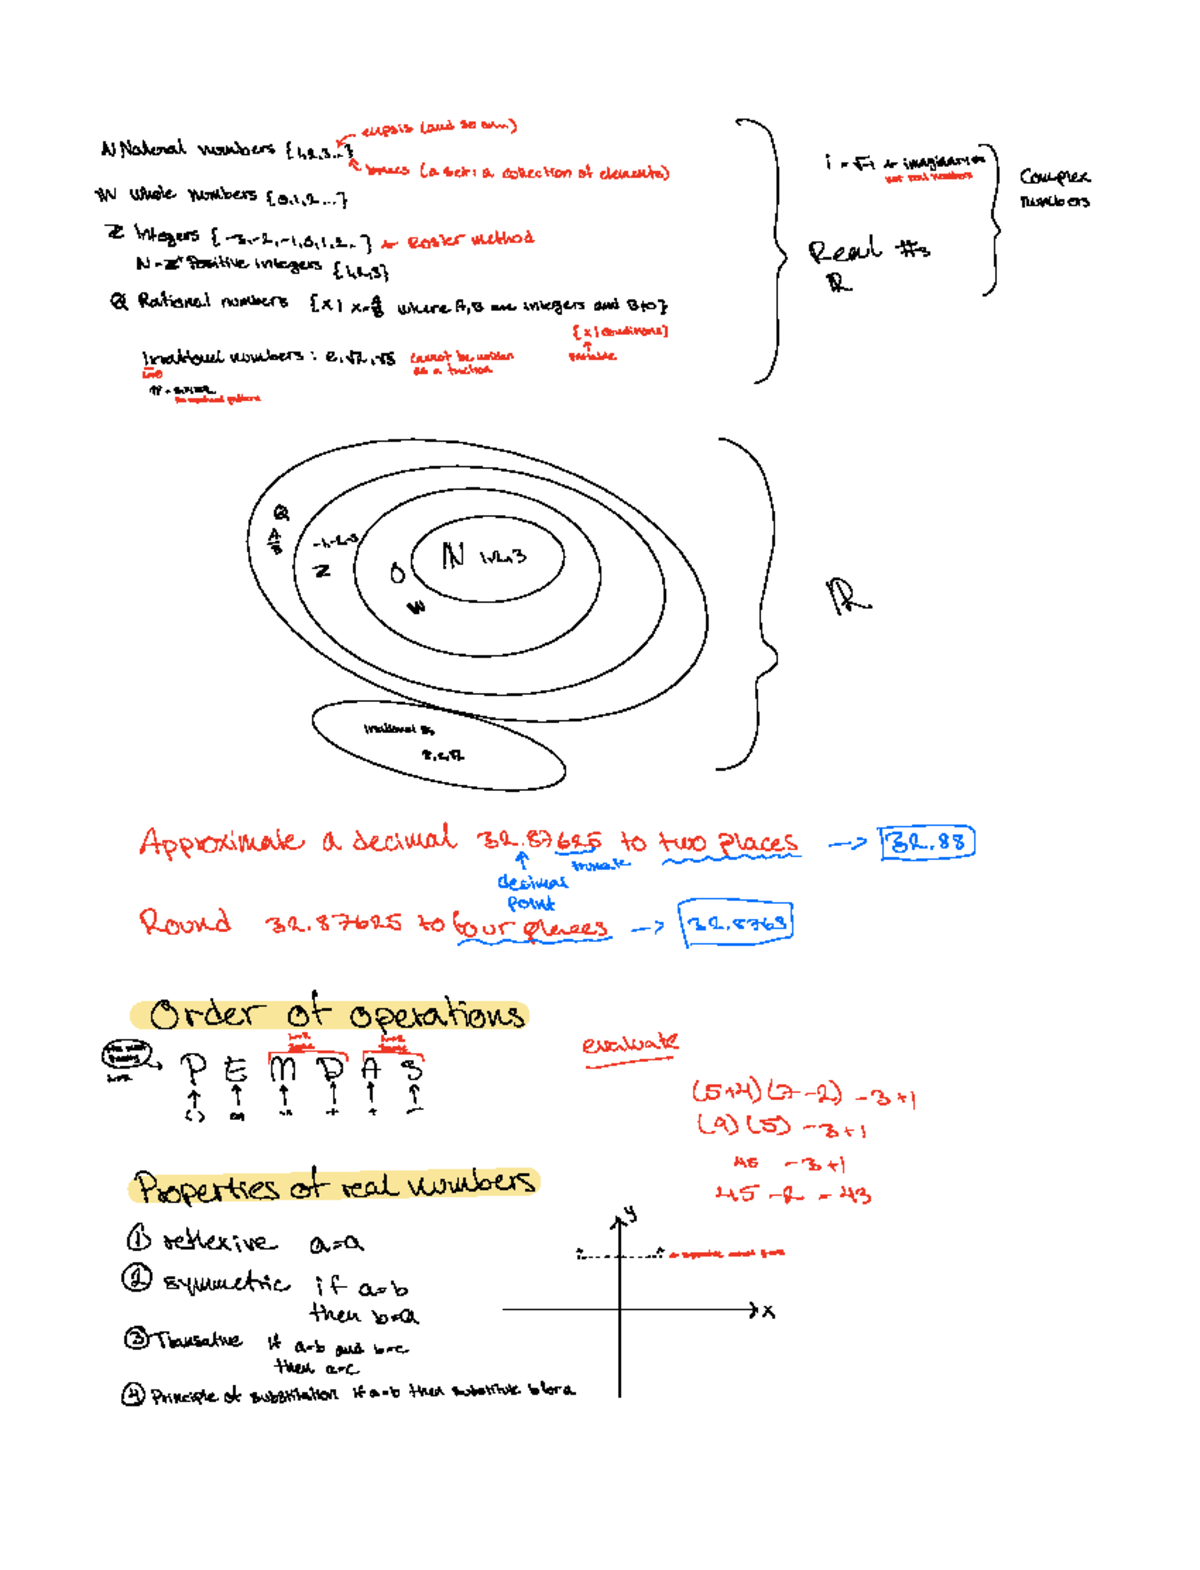 ellipsis (and so on...)
N Natural numbers {1,2,3...}
braces (a set: a collection of elements)
i = √-1 ← imaginaries
not real numbers
Complex
numbers
W whole numbers {0,1,2...}
Z Integers {-3,-2,-1,0,1,2..} ← roster method
N = Z⁺ Positive integers {1,2,3}
Real #s
R
Q Rational numbers {x | x = A/B where A,B are integers and B≠0}
{x | conditions}
variable
Irrational numbers: e, √2, √5 cannot be written
as a fraction
Q
A/B
-1,-2,-3
Z
0
W
N 1,2,3
R
Irrational #s
Approximate a decimal 32.87625 to two places → 32.88
truncate
decimal
point
Round 32.87625 to four places → 32.8763
Order of operations
P E M D A S
( )
evaluate
(5+4)(7-2) -3+1
(9)(5) -3+1
45 -3+1
45 -2 = 43
Properties of real numbers
① reflexive a=a
② symmetric if a=b
then b=a
③ Transative if a=b and b=c
then a=c
④ Principle of substitution if a=b then substitute b for a
y
x